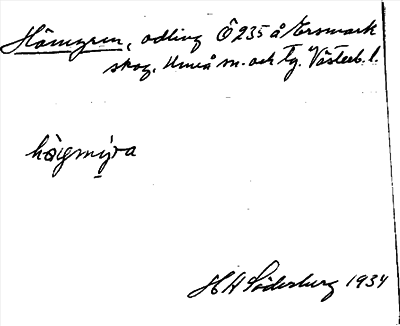 Hömyren, odling Ö 235 å Ersmark
skog. Umeå m. och Tg. Västerb. l.
högmýra
H H Söderberg 1934